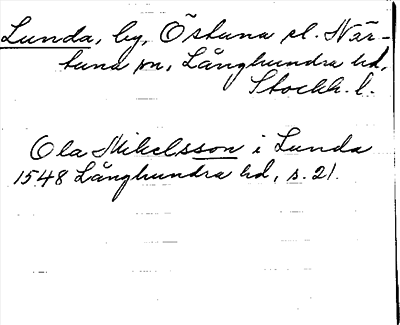 Lunda, by, Östuna el. När-
tuna sn, Långhundra hd,
Stockh. l.
Ola Mikelsson i Lunda
1548 Långhundra hd, s. 21.